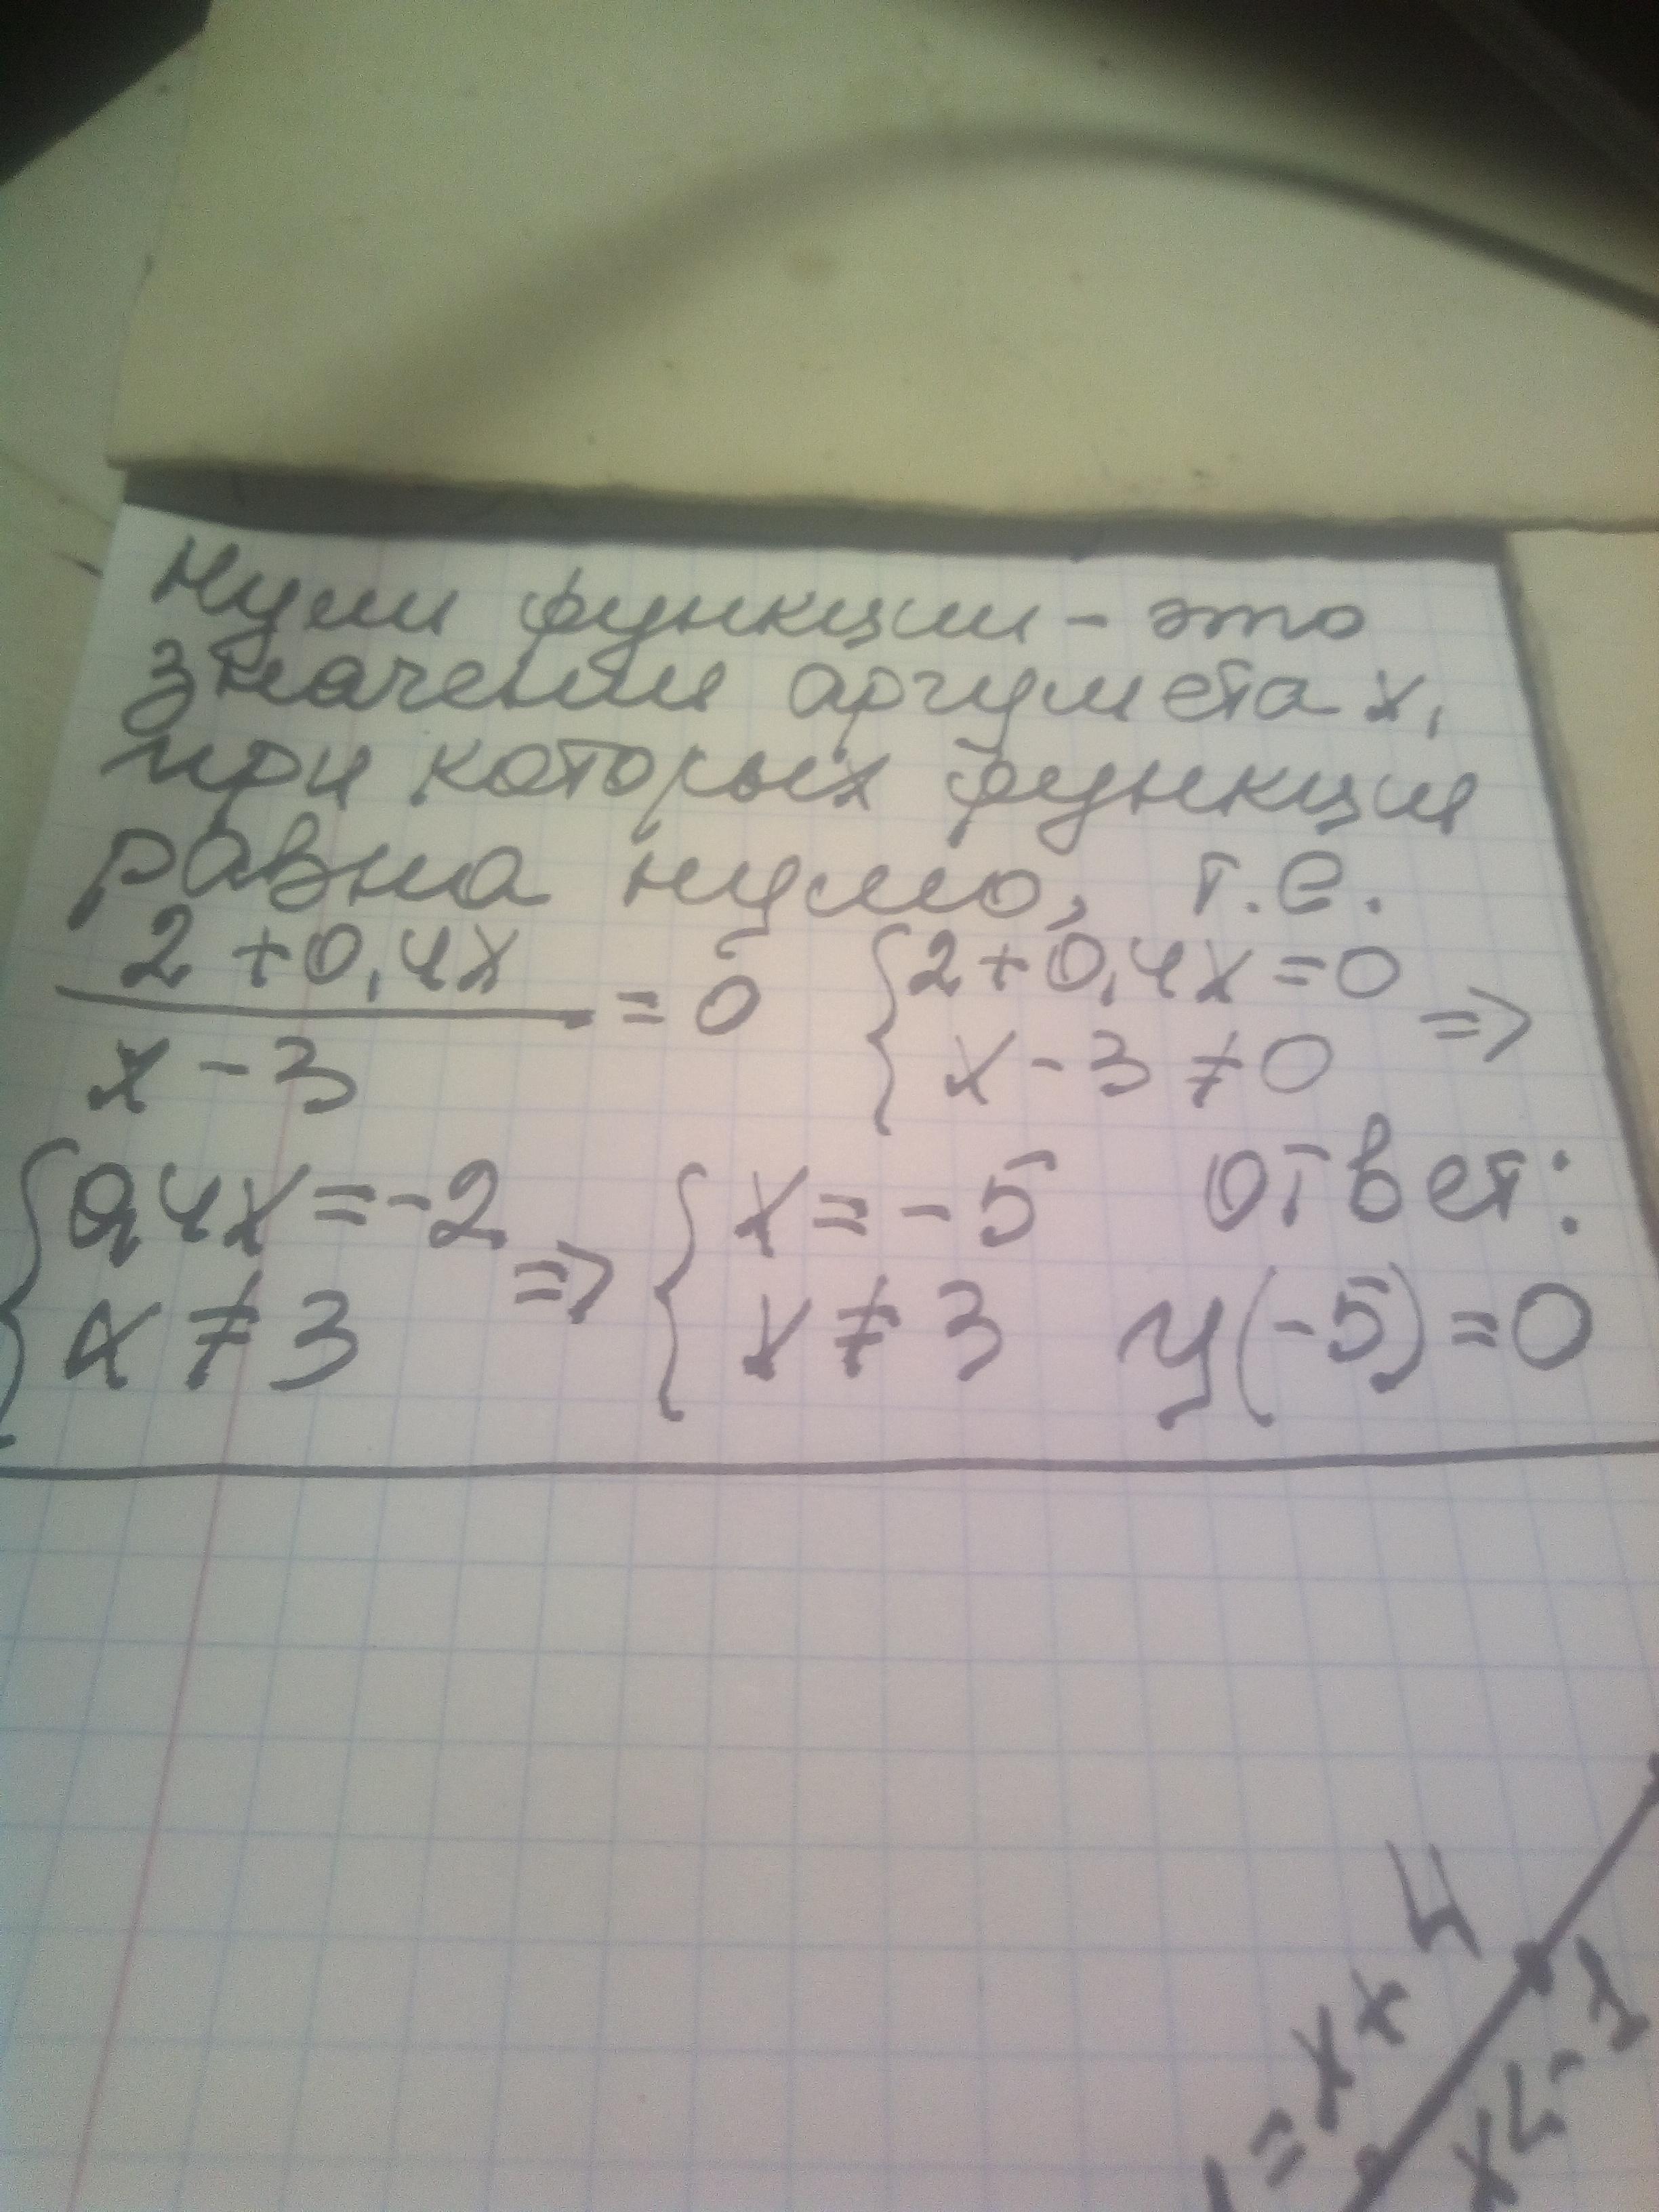 Нули функции - это
значения аргумета x,
при которых функция
равна нулю, т.е.
2+0,4x / x-3 = 0 { 2+0,4x=0 x-3≠0 =>
{ 0,4x=-2 x≠3 => { x=-5 x≠3 Ответ: y(-5)=0
= x+4
x<-1